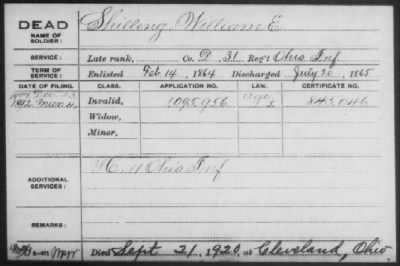 DEAD
NAME OF SOLDIER: Shilling, William E.
SERVICE: Late rank, Co. D, 31 Reg't Ohio Inf.
TERM OF SERVICE: Enlisted Feb. 14, 1864 Discharged July 20, 1865
DATE OF FILING. CLASS. APPLICATION NO. LAW. CERTIFICATE NO.
1892 Invalid, 1095956 843,046
Widow,
Minor,
ADDITIONAL SERVICES: Ohio Inf
REMARKS:
Died Sept 21, 1920, at Cleveland, Ohio